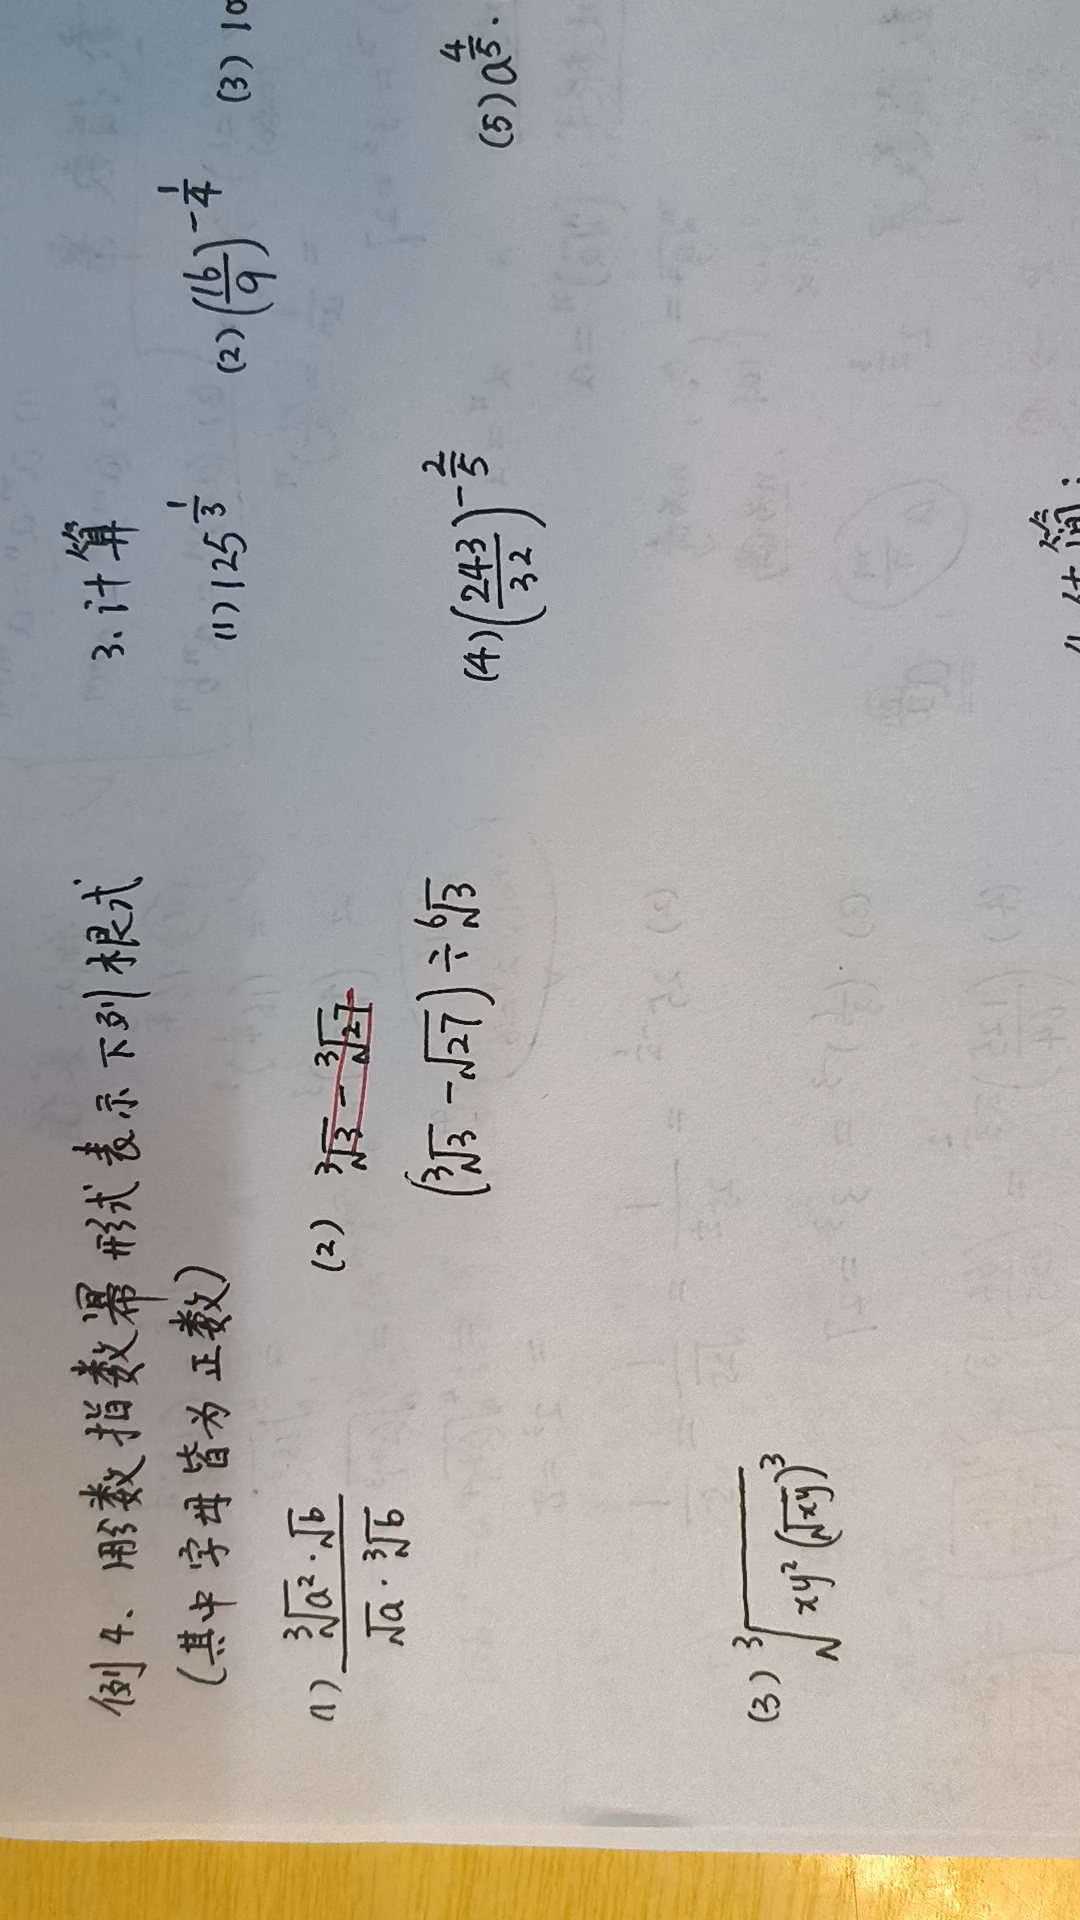 例4. 用分数指数幂形式表示下列根式
(其中字母皆为正数)
(1) \frac{\sqrt[3]{a^2}·\sqrt{b}}{\sqrt{a}·\sqrt[3]{b}}
(2) \sqrt[3]{3} - \sqrt[3]{27}
(\sqrt[3]{3} - \sqrt{27}) ÷ \sqrt[6]{3}
(3) \sqrt[3]{xy^2(\sqrt{xy})^3}
3. 计算
(1) 125^{\frac{1}{3}} (2) (\frac{16}{9})^{-\frac{1}{4}} (3) 10
(4) (\frac{243}{32})^{-\frac{2}{5}} (5) a^{\frac{4}{5}}·
计算: